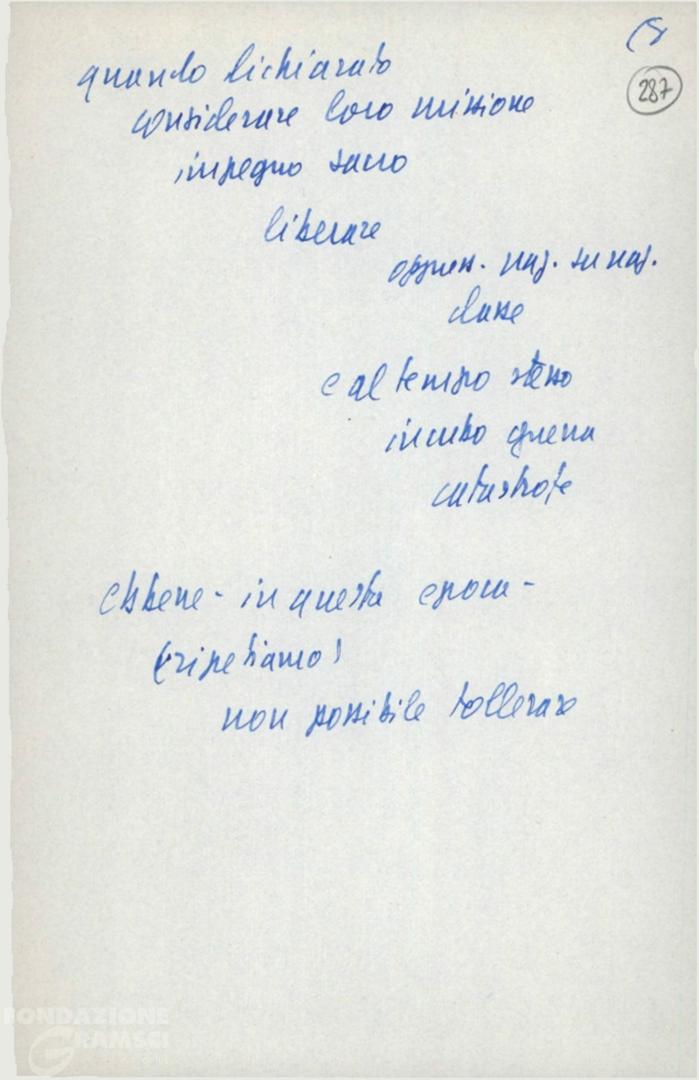 (5
287
quando dichiarato
considerare loro missione
impegno sacro
liberare
oppress. naz. su naz.
classe
e al tempo stesso
incubo guerra
catastrofe
ebbene - in questa epoca -
(ripetiamo)
non possibile tollerare
FONDAZIONE
GRAMSCI